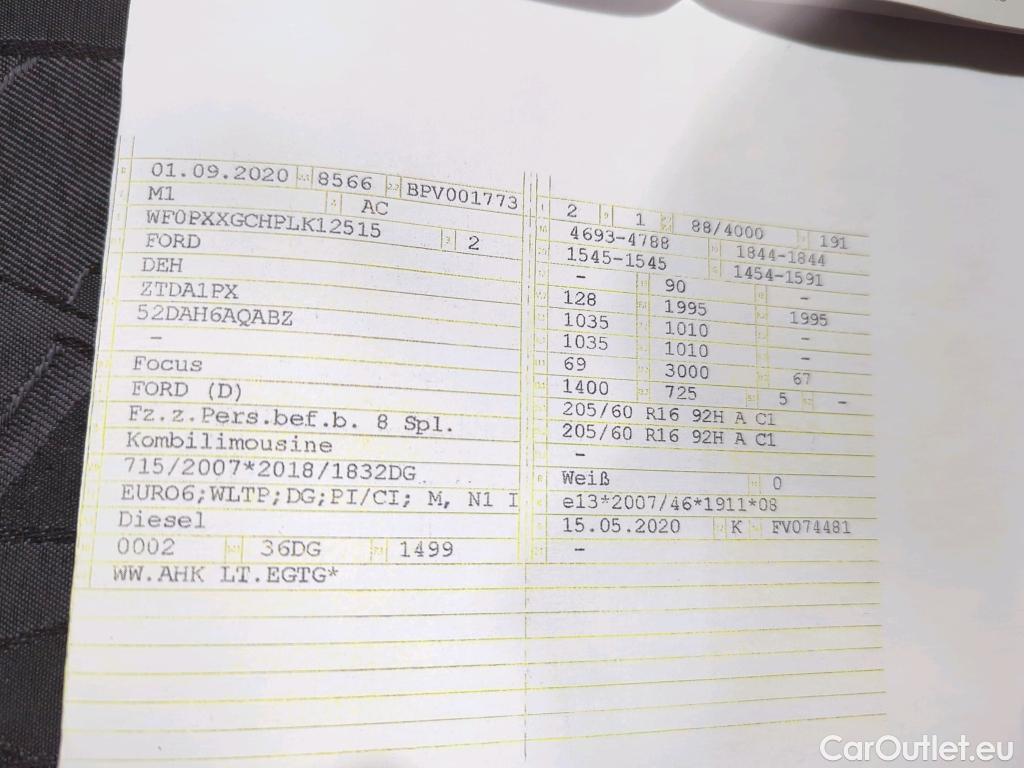 01.09.2020 8566 BPV001773
M1 AC
WF0PXXGCHPLK12515 2
FORD
DEH
ZTDA1PX
52DAH6AQABZ
–
Focus
FORD (D)
Fz.z.Pers.bef.b. 8 Spl.
Kombilimousine
715/2007*2018/1832DG
EURO6;WLTP;DG;PI/CI; M, N1 I
Diesel
0002 36DG 1499
WW.AHK LT.EGTG*
2 1 88/4000 191
4693-4788 1844-1844
1545-1545 1454-1591
– 90 –
128 1995 1995
1035 1010 –
1035 1010 –
69 3000 67
1400 725 5 –
205/60 R16 92H A C1
205/60 R16 92H A C1
–
Weiß 0
e13*2007/46*1911*08
15.05.2020 K FV074481
–
CarOutlet.eu